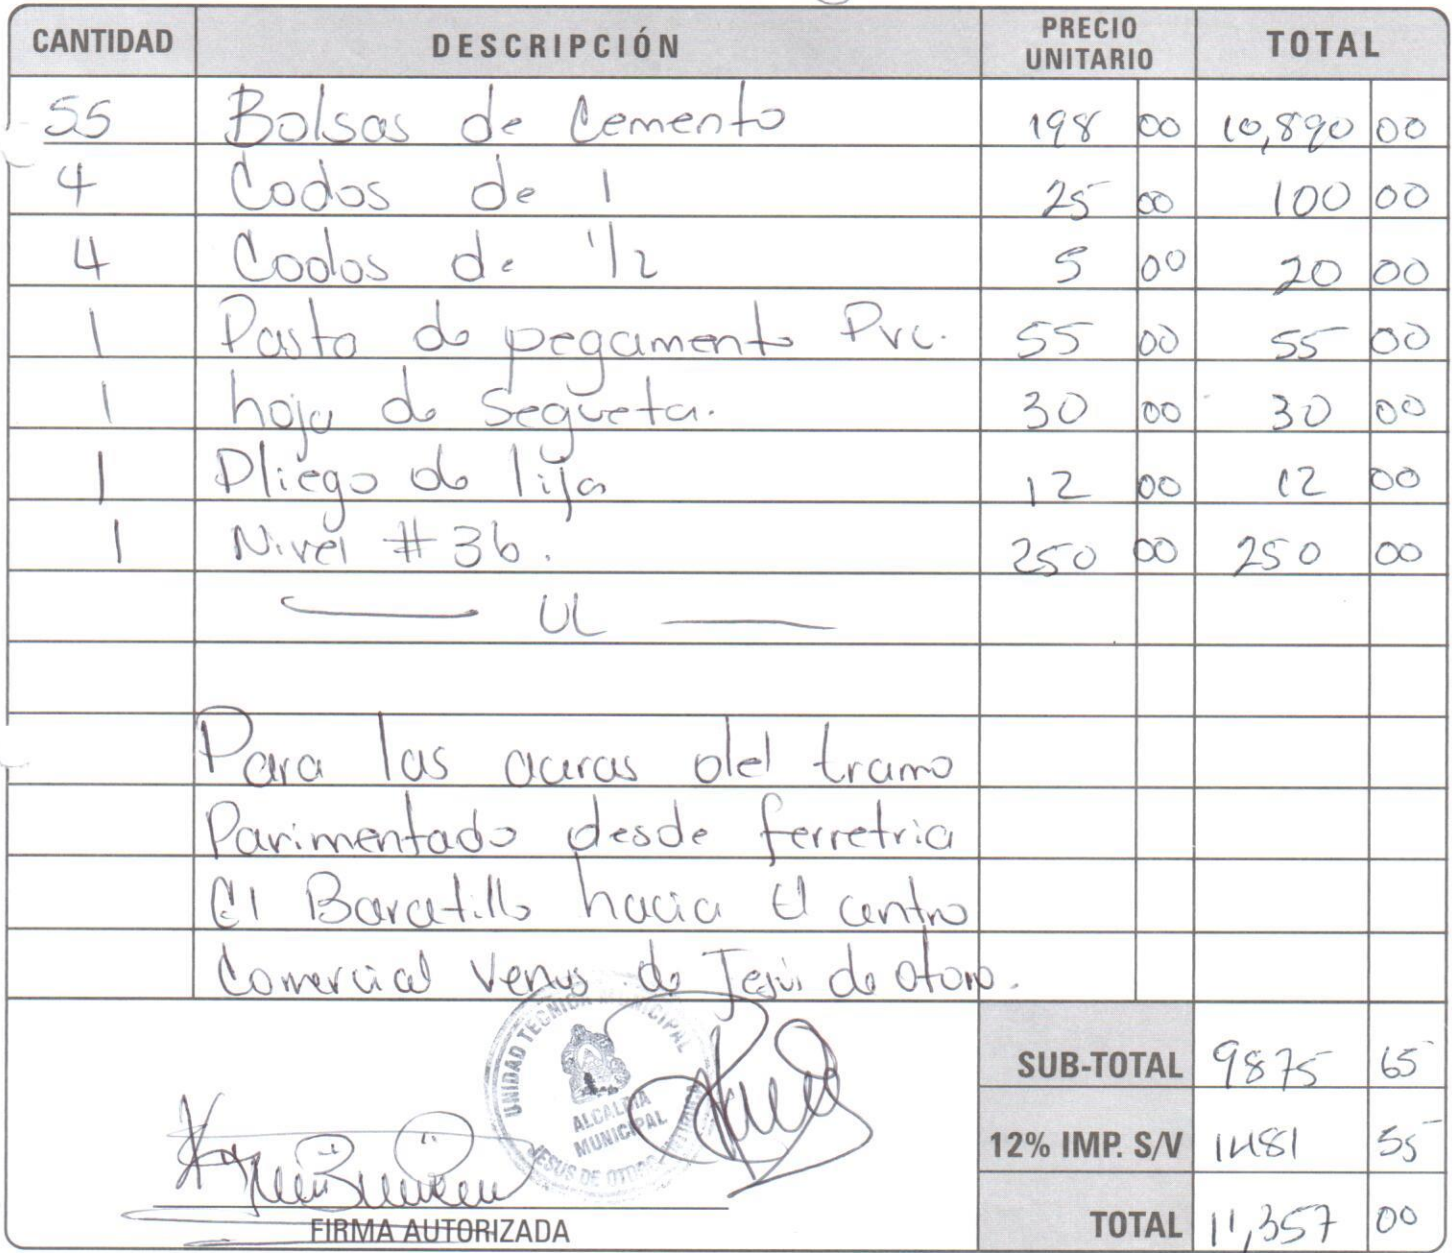 CANTIDAD DESCRIPCIÓN PRECIO UNITARIO TOTAL
55 Bolsas de Cemento 198 00 10,890 00
4 Codos de 1 25 00 100 00
4 Codos de 1/2 5 00 20 00
1 Pasta de pegamento Pvc. 55 00 55 00
1 hoja de Segueta. 30 00 30 00
1 Pliego de lija 12 00 12 00
1 Nivel # 36. 250 00 250 00
— UL —
Para las aceras del tramo
Pavimentado desde ferretria
El Baratillo hacia El centro
Comercial Venus de Jesus de Otoro.
SUB-TOTAL 9875 65
12% IMP. S/V 1481 55
TOTAL 11,357 00
UNIDAD TECNICA MUNICIPAL
ALCALDIA
MUNICIPAL
JESUS DE OTORO
FIRMA AUTORIZADA